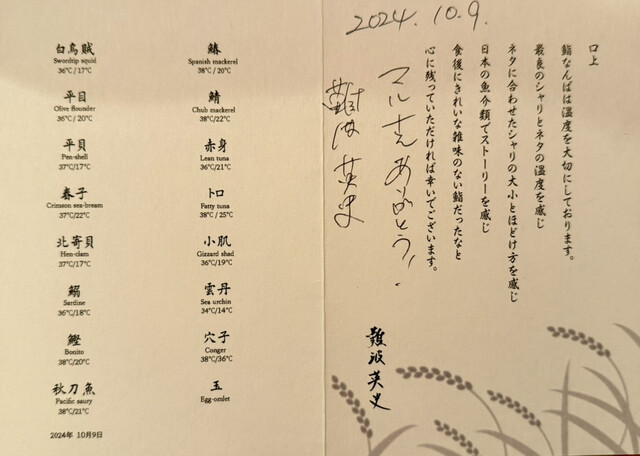 白烏賊
Swordtip squid
36℃/17℃
平目
Olive flounder
36℃/20℃
平貝
Pen-shell
37℃/17℃
春子
Crimson sea-bream
37℃/22℃
北寄貝
Hen-clam
37℃/17℃
鰯
Sardine
36℃/18℃
鰹
Bonito
38℃/20℃
秋刀魚
Pacific saury
38℃/21℃
2024年 10月9日
鰆
Spanish mackerel
38℃/20℃
鯖
Chub mackerel
38℃/22℃
赤身
Lean tuna
36℃/21℃
トロ
Fatty tuna
38℃/25℃
小肌
Gizzard shad
36℃/19℃
雲丹
Sea urchin
34℃/14℃
穴子
Conger
38℃/36℃
玉
Egg-omlet
2024.10.9.
口上
鮨なんばは温度を大切にしております。
最良のシャリとネタの温度を感じ
ネタに合わせたシャリの大小とほどけ方を感じ
日本の魚介類でストーリーを感じ
食後にきれいな雑味のない鮨だったなと
心に残っていただければ幸いでございます。
ありがとう
難波英史
難波英史